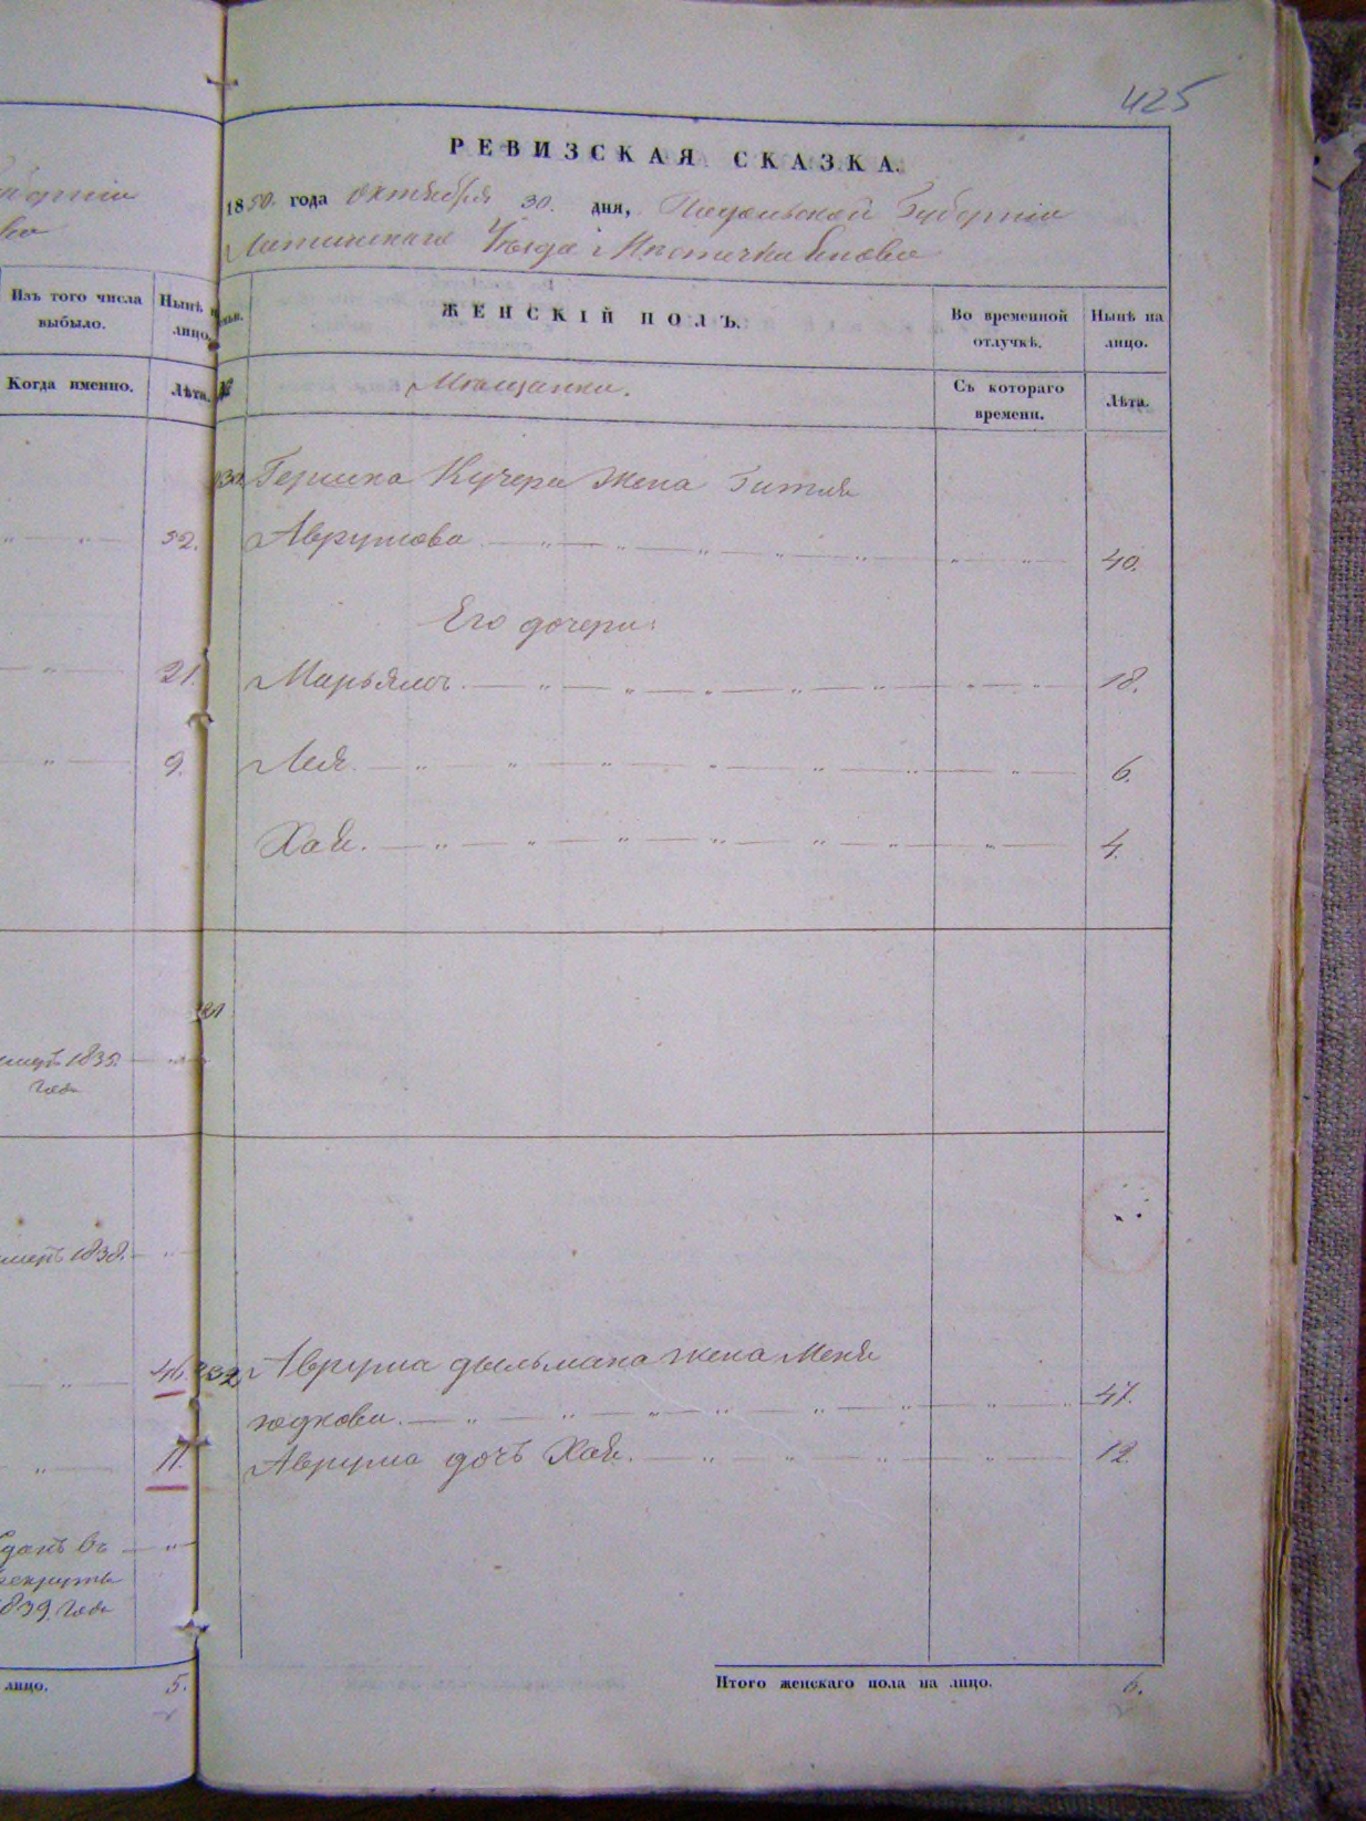 425
РЕВИЗСКАЯ СКАЗКА.
1850. года Октября 30. дня, Подольской Губернiи
Летичевскаго Уѣзда Мѣстечка
Изъ того числа выбыло.
Нынѣ
лицо.
ЖЕНСКIЙ ПОЛЪ.
Во временной отлучкѣ.
Нынѣ на лицо.
Когда именно.
Лѣта.
№
Мѣщанки.
Съ котораго времени.
Лѣта.
Гершка Кучера жена Битля
32.
Аврумова
40.
Его дочери:
21.
Марьямъ.
18.
9.
Лея.
6.
Хая.
4.
1835.
года
1838.
46.
232
Аврума дыльмана жена Меня
47.
юдкова.
11.
Аврума дочь Хая.
12.
въ
рекруты
1839. года
лицо.
5.
Итого женскаго пола на лицо.
6.